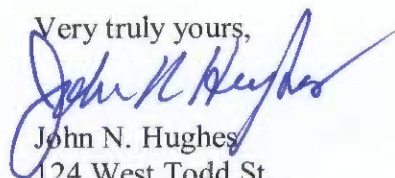 Very truly yours,
John N Hughes
John N. Hughes
124 West Todd St.